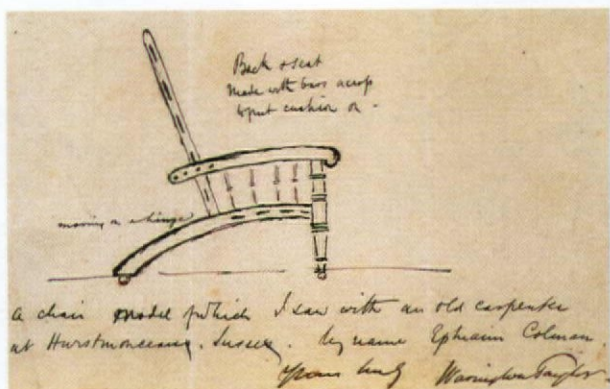 Back & seat
Made with bars across
to put cushion on -
moving on a hinge
a chair model of which I saw with an old carpenter
at Hurstmonceaux, Sussex. by name Ephraim Colman.
Yours truly Warington Taylor